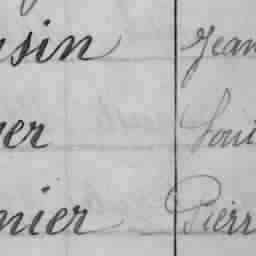 sin Jean
er Loui
nier Pierr